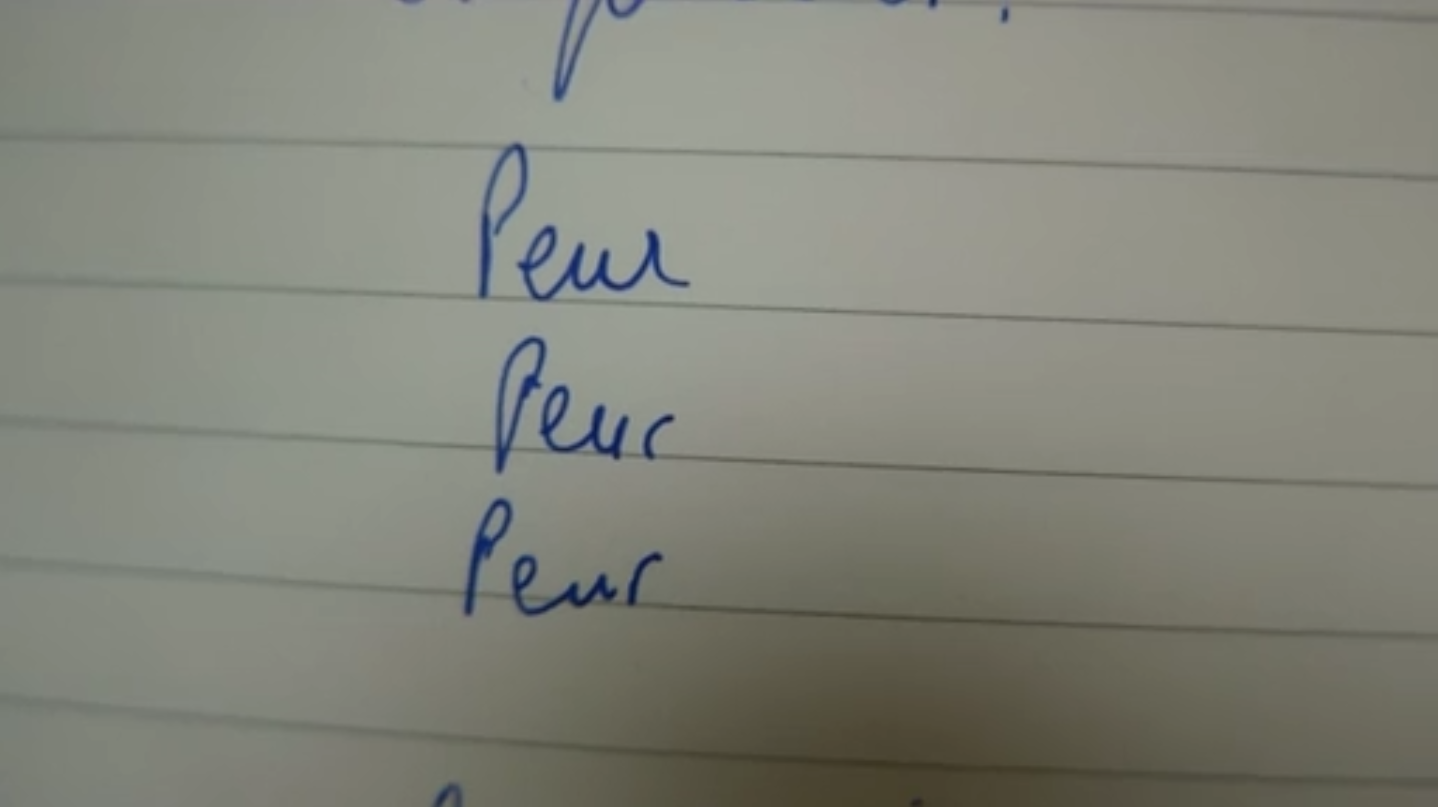 Peur
Peur
Peur